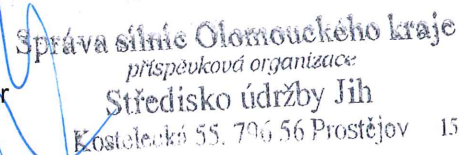 Správa silnic Olomouckého kraje
příspěvková organizace
Středisko údržby Jih
Kostelecká 55, 796 56 Prostějov 15